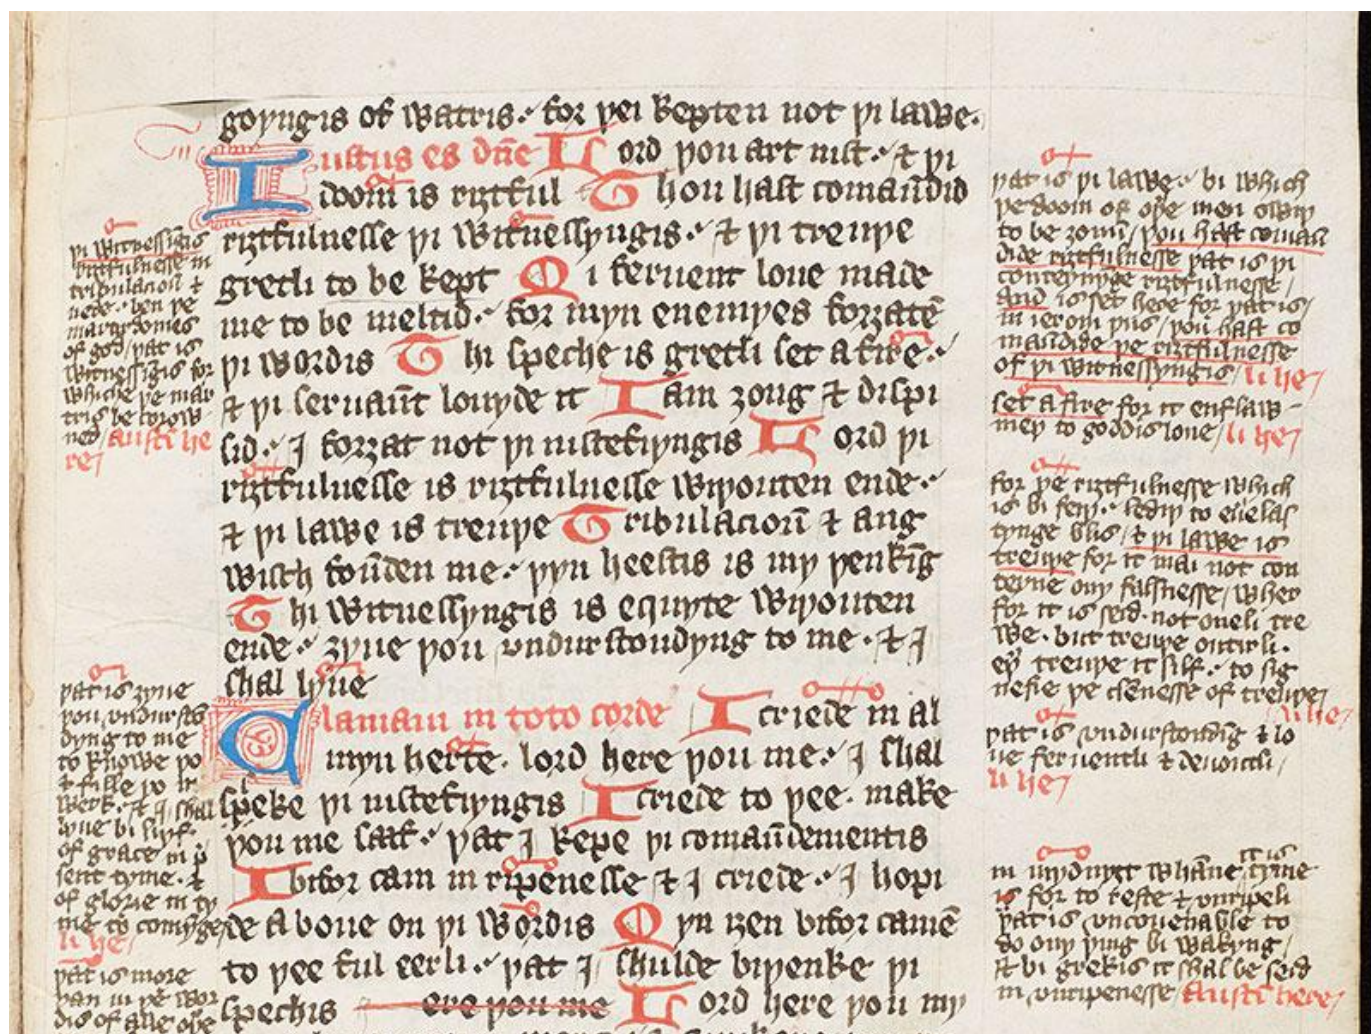 goyngis of watris· for þei kepten not þi lawe·
Iustus es dn̄e Lord þou art iust· ⁊ þi
doom is riȝtful Thou hast comaūdid
riȝtfulnesse þi witnessyngis· ⁊ þi treuþe
gretli to be kept Mi feruent loue made
me to be meltid· for myn enemyes forȝatē
þi wordis Thi speche is gretli set afire·
⁊ þi seruaūt louyde it I am ȝong ⁊ dispi
sid· I forȝat not þi iustefiyngis Lord þi
riȝtfulnesse is riȝtfulnesse wiþouten ende·
⁊ þi lawe is treuþe Tribulacioū ⁊ ang
wisch foūden me· þyn heestis is my þenkīg
Thi witnessyngis is equyte wiþouten
ende· ȝyue þou vndurstondyng to me· ⁊ I
shal lyue
Clamaui in toto corde I criede in al
myn herte· lord here þou me· I shal
speke þi iustefiyngis I criede to þee· make
þou me saaf· þat I kepe þi comaūdementis
I bifor cam in ripenesse ⁊ I criede· I hopi
de aboue on þi wordis Myn iȝen bifor camē
to þee ful eerli· þat I shulde biþenke þi
spechis ere þou me Lord here þou my
þi witnessīgis
riȝtfulnesse in
tribulacion ⁊
nede· ben þe
martirdomes
of god/ þat is
witnessīgis for
whiche þe mar
tris be corow
ned/ austī he
re/
þat is ȝyue
þou vndurstō
dyng to me
to knowe þo
⁊ fille þo
werk· ⁊ I shal
lyue bi lijf
of grace in p̄
sent tyme· ⁊
of glorie in ty
me to comyge
li he/
þat is more
þan in þe wor
dis of alle oþe
þat is þi lawe· bi which
þe doom of oþe men owiþ
to be ȝouū/ þou hast comaū
dide riȝtfulnesse þat is þi
conteynyde riȝtfulnesse/
and is set here for þat is/
in ierom þus/ þou hast co
maūdide þe riȝtfulnesse
of þi witnessyngis/ li he/
set afire for it enflaw-
meþ to goddis loue/ li he/
for þe riȝtfulnesse which
is bi feiþ· lediþ to euelas
tynge blis/ ⁊ þi lawe is
treuþe for it mai not con
teyne ony falsnesse/ wher
for it is seid· not oneli tre
we· but treuþe outirli·
eþ̄ treuþe it silf· to sig
nefie þe clēnesse of treuþe/
li he/
þat is vndurstondīg ⁊ lo
ue feruentli ⁊ deuoutli/
li he/
in mydnyȝt whāne it is tyme
is for to reste ⁊ vnripeli
þat is vncouenable to
do ony þing bi wakyng/
⁊ bi grekis it shal be seid
in vnripenesse/ Austī here/